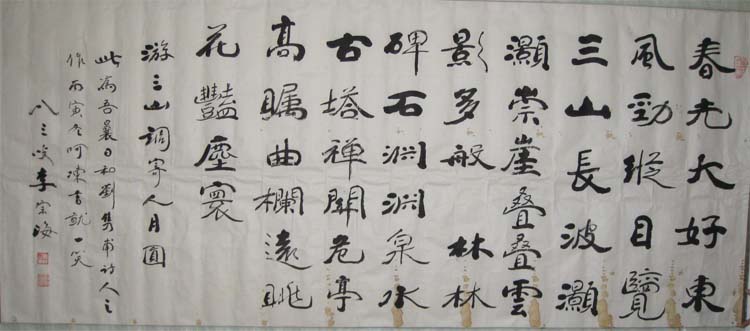 春光大好東
風勁縱目覽
三山長波灝
灝崇崖叠叠雲
影多般 林林
碑石渊渊泉水
古塔禅関危亭
高瞩曲欄遠眺
花豔塵寰
游三山調寄人月圆
此為吾曩日和劉隽甫詩人之
作丙寅冬呵凍書就一笑
八三叟李宗海